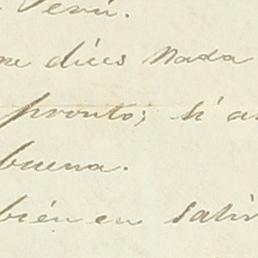 Perú.
me dices nada
pronto; si a
buena.
bién en salir